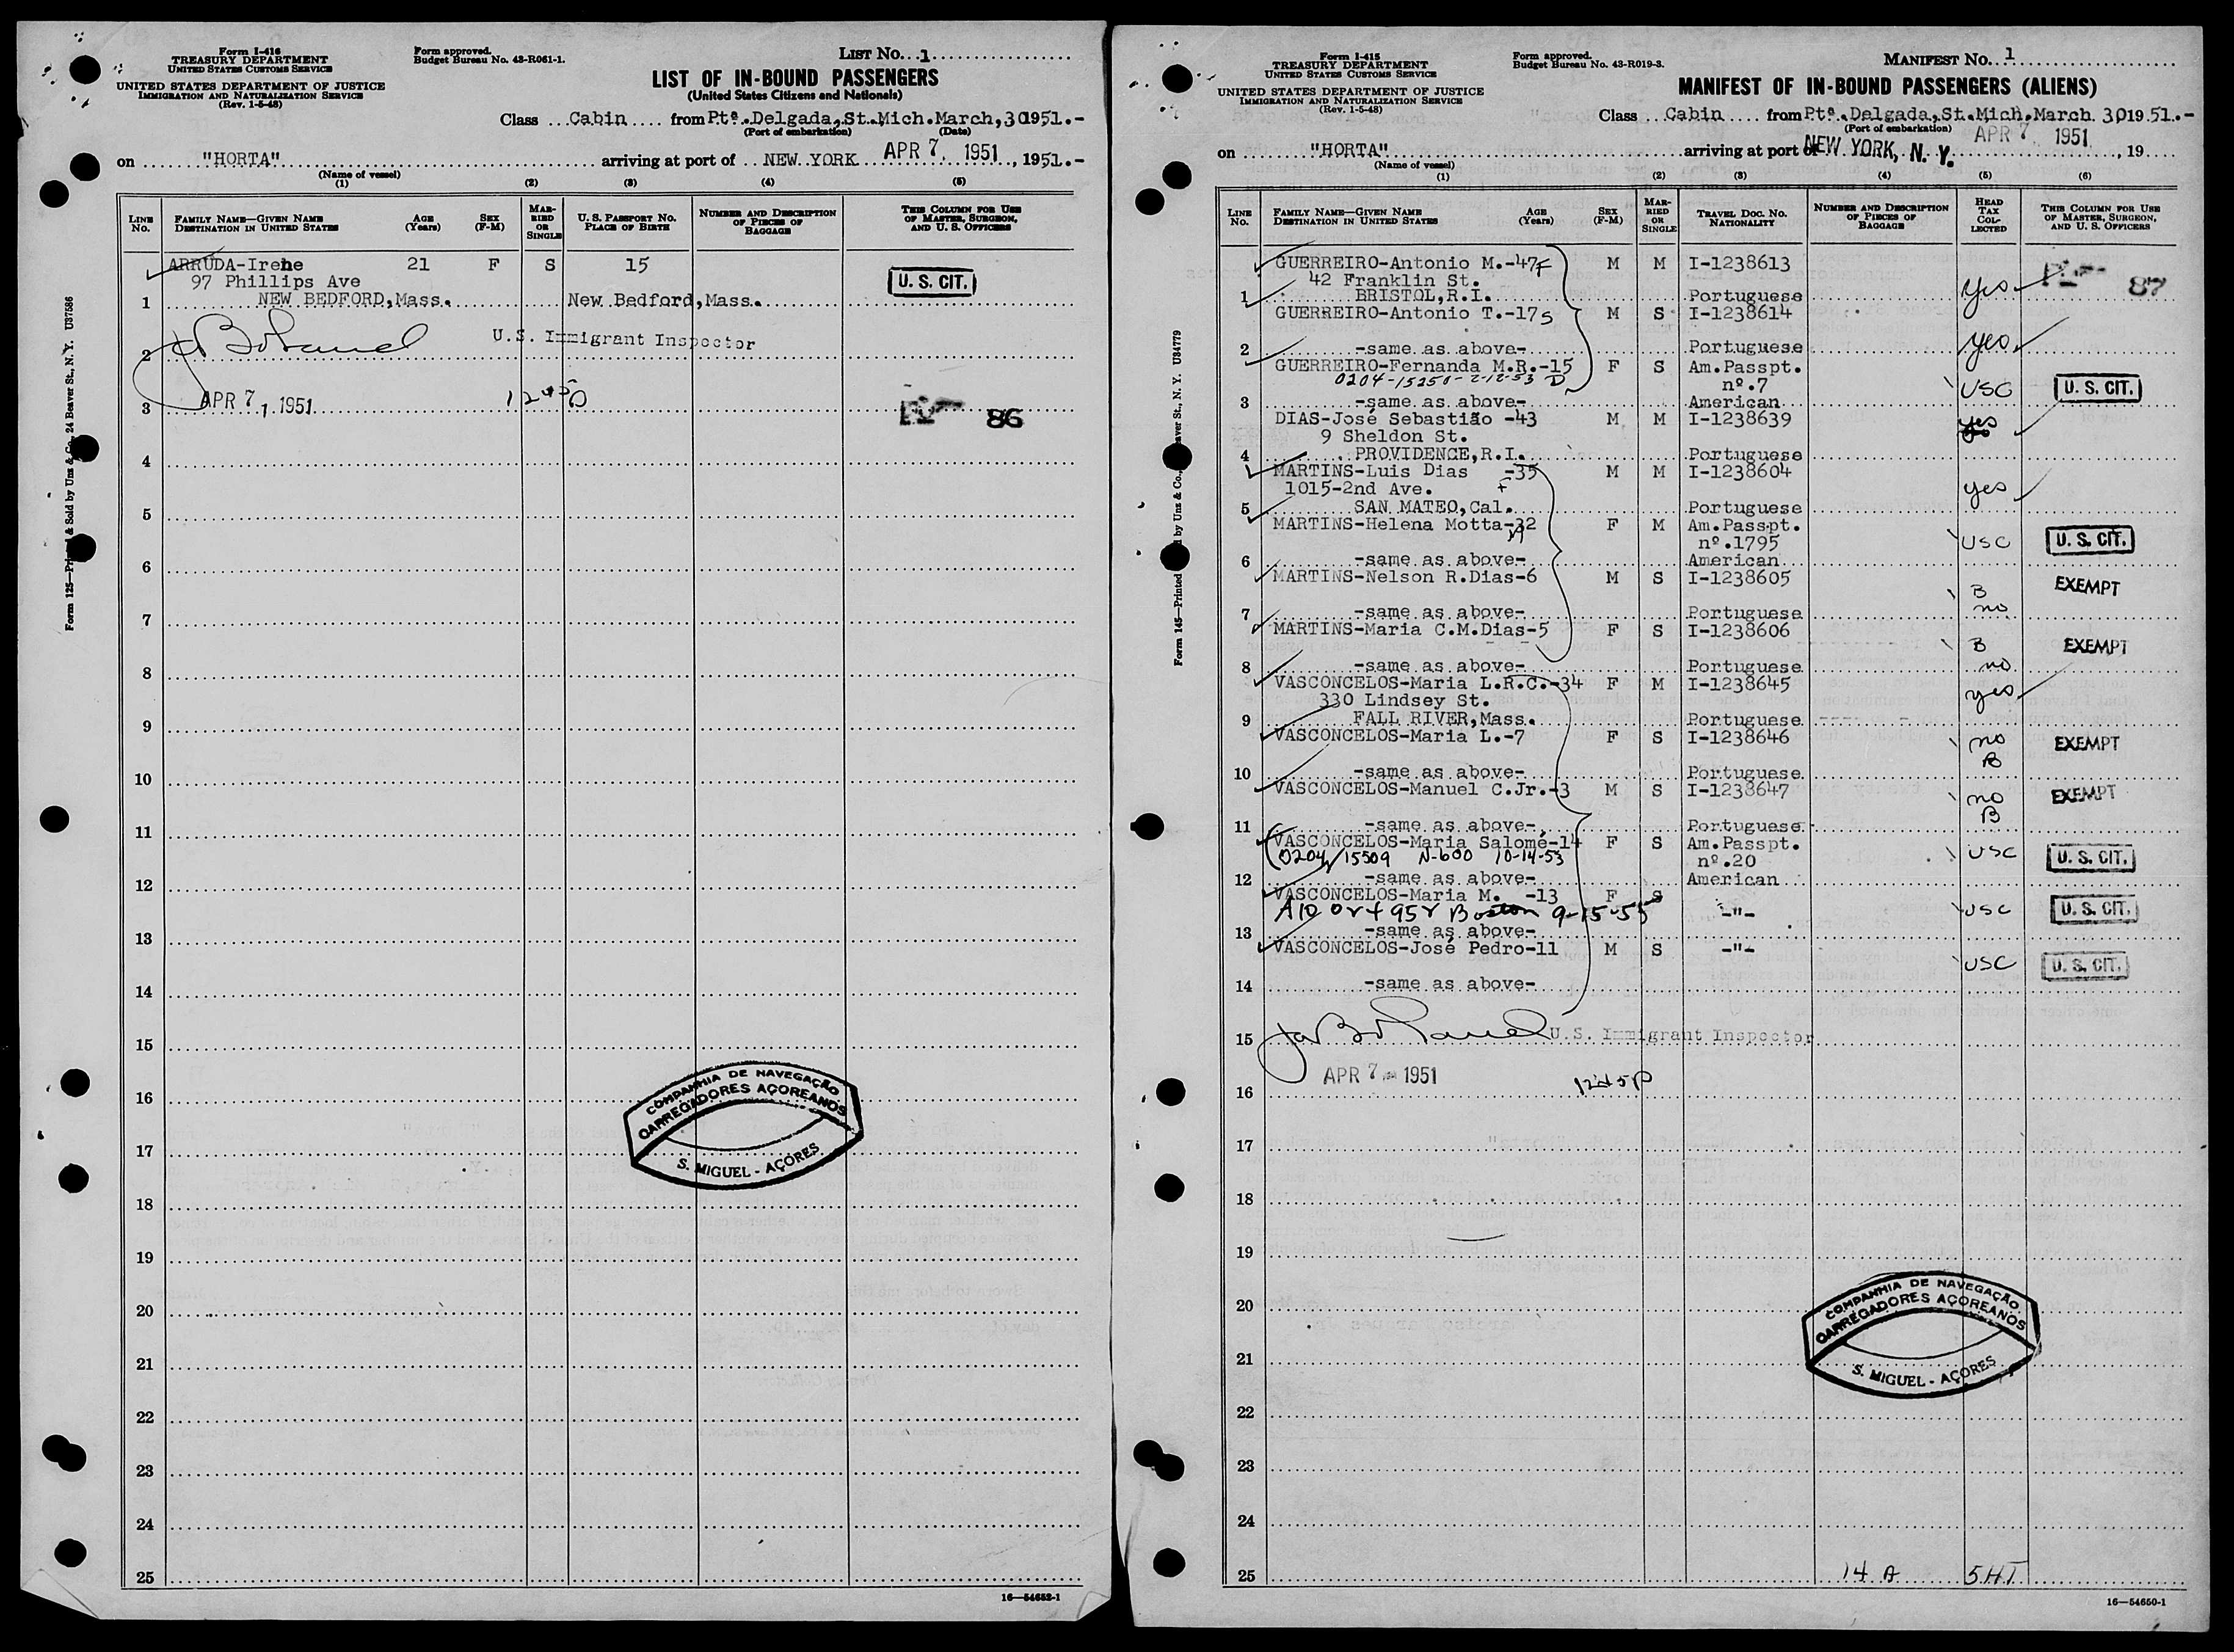 Form I-416
TREASURY DEPARTMENT
UNITED STATES CUSTOMS SERVICE
UNITED STATES DEPARTMENT OF JUSTICE
IMMIGRATION AND NATURALIZATION SERVICE
(Rev. 1-5-48)
Form approved.
Budget Bureau No. 43-R061-1.
LIST NO. 1
LIST OF IN-BOUND PASSENGERS
(United States Citizens and Nationals)
Class Cabin from Ptª. Delgada, St. Mich. March, 30 1951.-
(Port of embarkation) (Date)
on "HORTA" arriving at port of NEW YORK APR 7, 1951, 1951.-
(Name of vessel)
(1) (2) (3) (4) (5)
LINE No. FAMILY NAME—GIVEN NAME DESTINATION IN UNITED STATES AGE (Years) SEX (F-M) MARRIED OR SINGLE U. S. PASSPORT NO. PLACE OF BIRTH NUMBER AND DESCRIPTION OF PIECES OF BAGGAGE THIS COLUMN FOR USE OF MASTER, SURGEON, AND U. S. OFFICERS
ARRUDA-Irene 21 F S 15 U. S. CIT.
97 Phillips Ave
1 NEW BEDFORD, Mass. New Bedford, Mass.
U.S. Immigrant Inspector
2
APR 7, 1951 1245p
3 86
4
5
6
7
8
9
10
11
12
13
14
15
16
17
18
19
20
21
22
23
24
25
COMPANHIA DE NAVEGAÇÃO
CARREGADORES AÇOREANOS
S. MIGUEL - AÇÔRES
16—54652-1
Form 125—Printed & Sold by Unz & Co., 24 Beaver St., N. Y. U37586
Form I-415
TREASURY DEPARTMENT
UNITED STATES CUSTOMS SERVICE
UNITED STATES DEPARTMENT OF JUSTICE
IMMIGRATION AND NATURALIZATION SERVICE
(Rev. 1-5-48)
Form approved.
Budget Bureau No. 43-R019-3.
MANIFEST NO. 1
MANIFEST OF IN-BOUND PASSENGERS (ALIENS)
Class Cabin from Ptª. Delgada, St. Mich. March. 30 1951.-
(Port of embarkation) APR 7 1951
on "HORTA" arriving at port of NEW YORK, N. Y. , 19
(Name of vessel)
(1) (2) (3) (4) (5) (6)
LINE No. FAMILY NAME—GIVEN NAME DESTINATION IN UNITED STATES AGE (Years) SEX (F-M) MARRIED OR SINGLE TRAVEL DOC. NO. NATIONALITY NUMBER AND DESCRIPTION OF PIECES OF BAGGAGE HEAD TAX COLLECTED THIS COLUMN FOR USE OF MASTER, SURGEON, AND U. S. OFFICERS
GUERREIRO-Antonio M.-47 F M M I-1238613
42 Franklin St. yes 87
1 BRISTOL, R.I. Portuguese
GUERREIRO-Antonio T.-17 S M S I-1238614
2 -same as above- Portuguese yes
GUERREIRO-Fernanda M.R.-15 F S Am.Passpt.
0204-15250-2-12-53 D nº.7 USC U. S. CIT.
3 -same as above- American
DIAS-José Sebastião -43 M M I-1238639 yes
9 Sheldon St.
4 PROVIDENCE, R.I. Portuguese
MARTINS-Luis Dias -35 M M I-1238604
1015-2nd Ave. F yes
5 SAN MATEO, Cal. Portuguese
MARTINS-Helena Motta-32 F M Am.Passpt.
nº.1795 USC U. S. CIT.
6 -same as above- American
MARTINS-Nelson R.Dias-6 M S I-1238605 B EXEMPT
7 -same as above- Portuguese no
MARTINS-Maria C.M.Dias-5 F S I-1238606 B EXEMPT
8 -same as above- Portuguese no
VASCONCELOS-Maria L.R.C.-34 F M I-1238645 yes
330 Lindsey St.
9 FALL RIVER, Mass. Portuguese
VASCONCELOS-Maria L.-7 F S I-1238646 no EXEMPT
B
10 -same as above- Portuguese
VASCONCELOS-Manuel C.Jr.-3 M S I-1238647 no EXEMPT
B
11 -same as above- Portuguese
VASCONCELOS-Maria Salomé-14 F S Am.Passpt.
0204/15509 N-600 10-14-53 nº.20 USC U. S. CIT.
12 -same as above- American
VASCONCELOS-Maria M. -13 F S
Boston 9-15-55 -"- USC U. S. CIT.
13 -same as above-
VASCONCELOS-José Pedro-11 M S -"-
USC U. S. CIT.
14 -same as above-
15 U.S. Immigrant Inspector
APR 7 1951 1245p
16
17
18
19
20
21
22
23
24
25 14 A 5HT
COMPANHIA DE NAVEGAÇÃO
CARREGADORES AÇOREANOS
S. MIGUEL - AÇÔRES
16—54650-1
Form 145—Printed by Unz & Co., Beaver St., N. Y. U34779